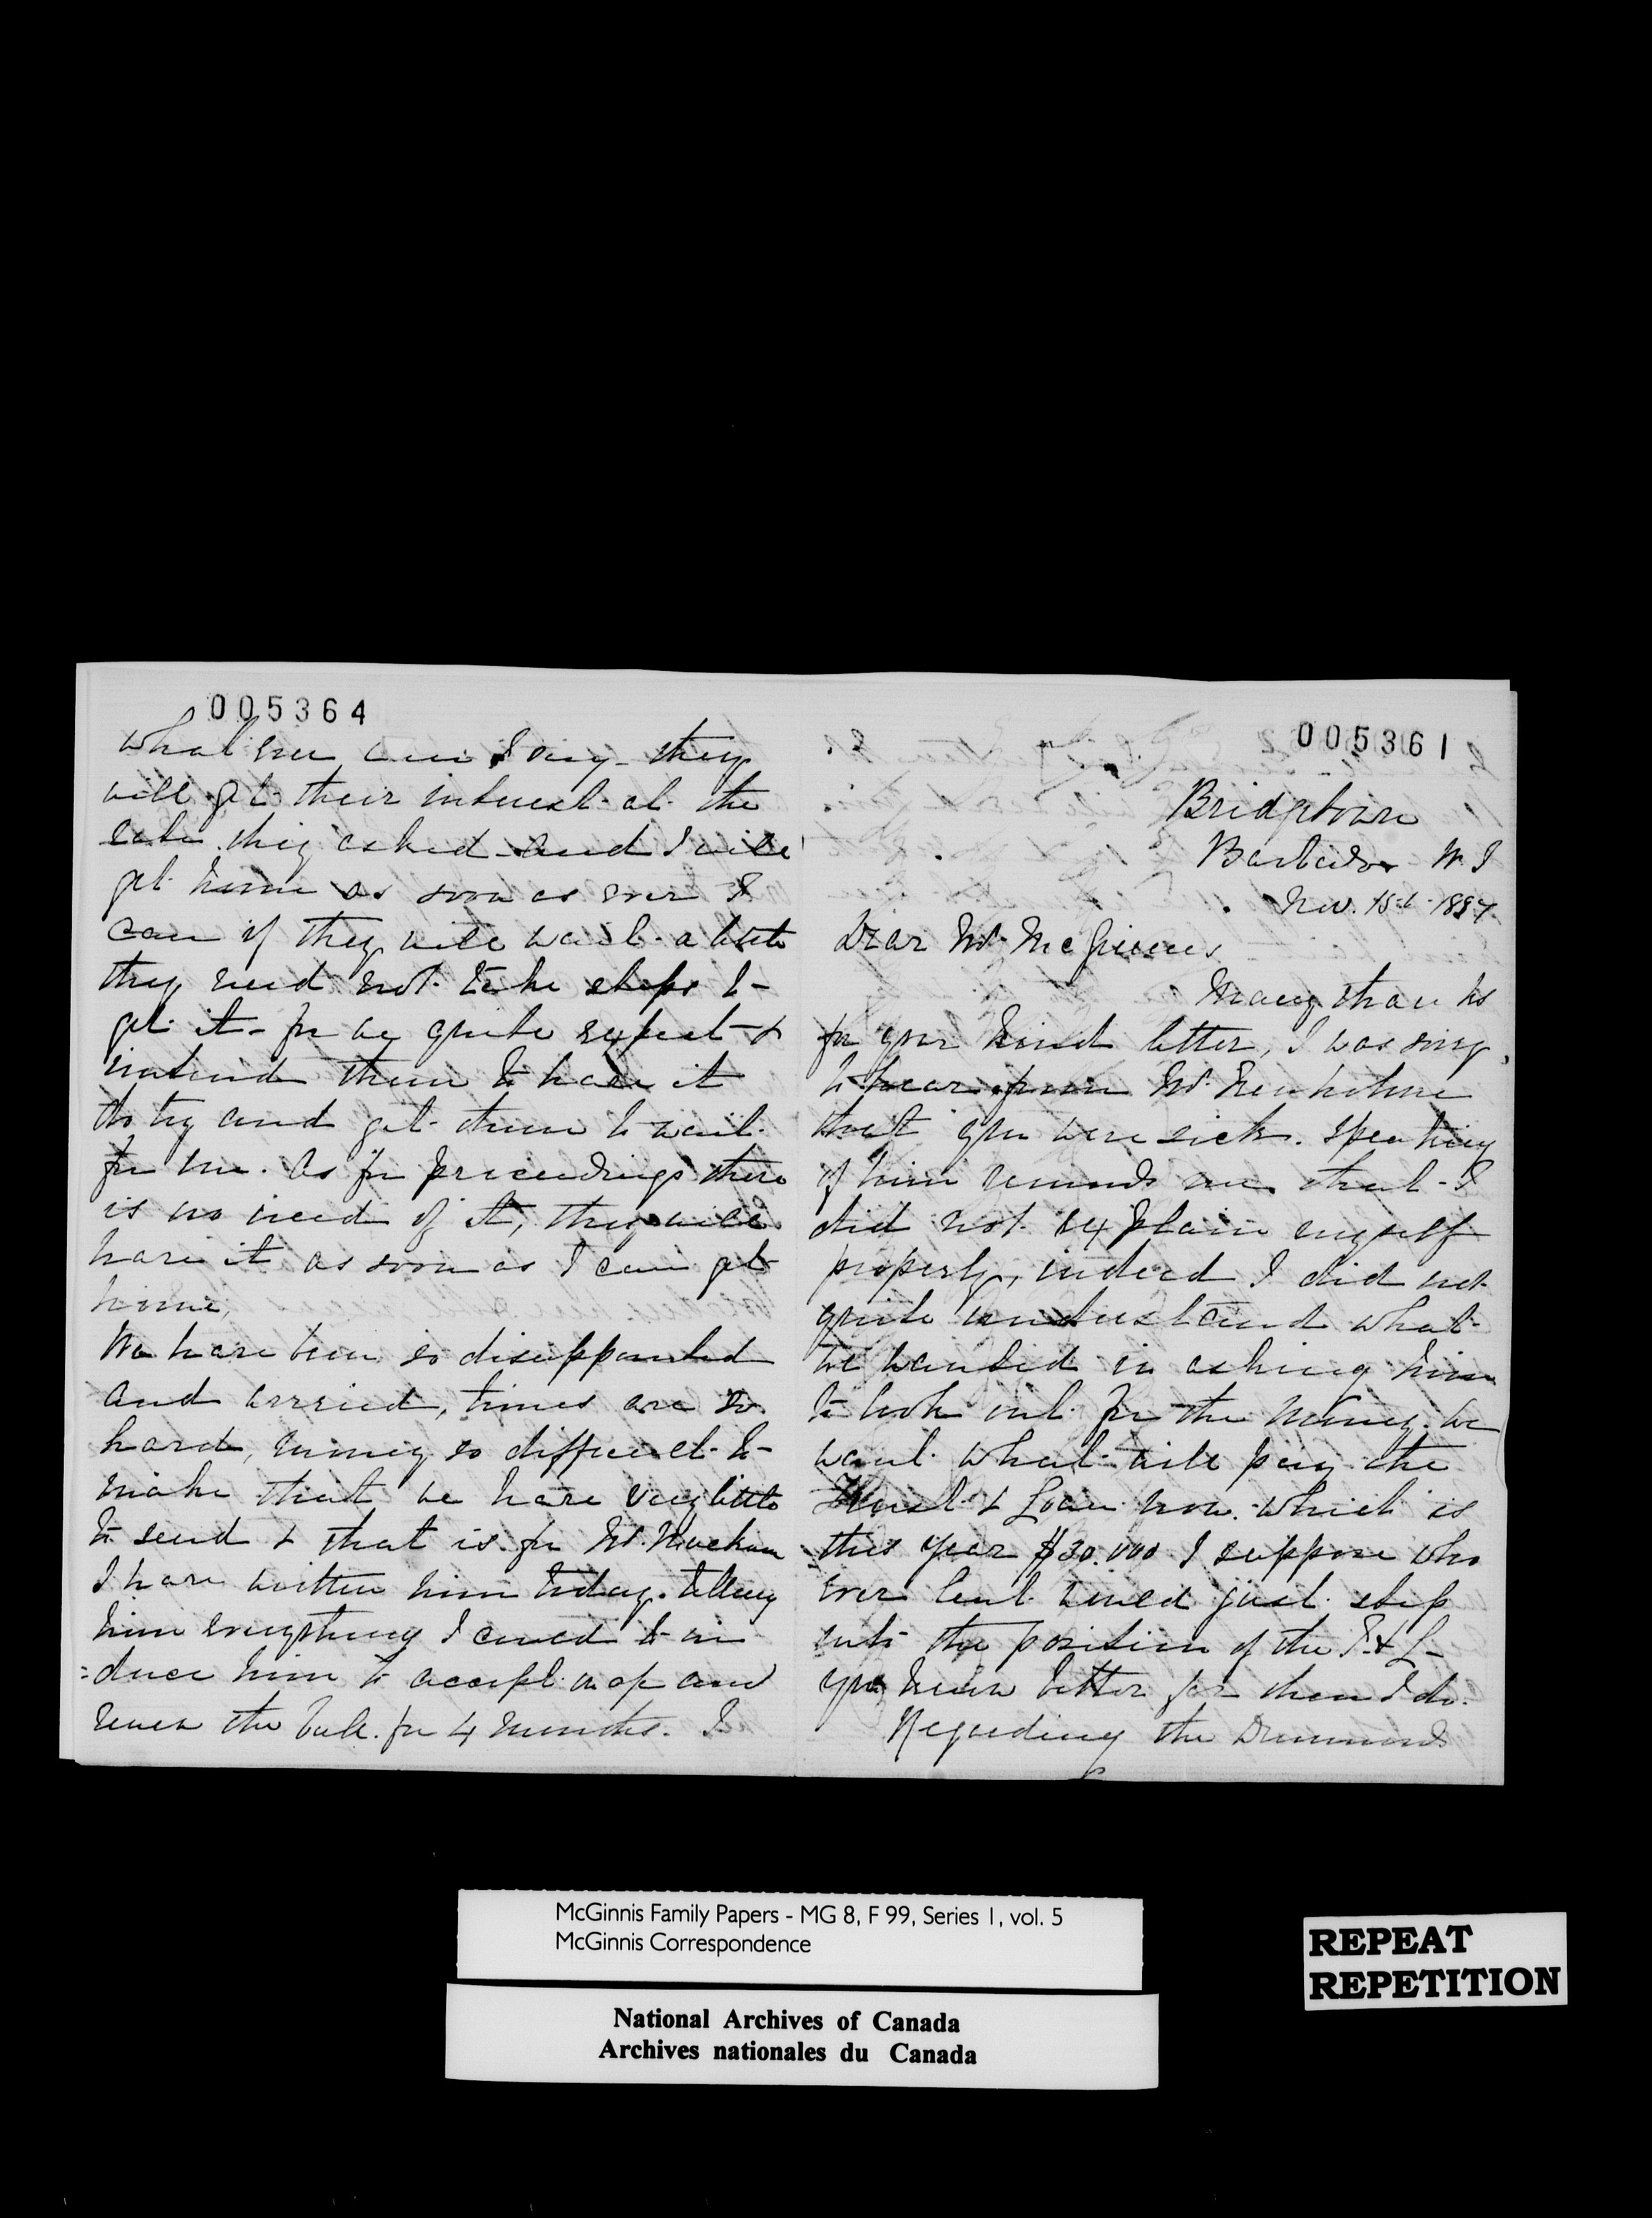 005364
what ever can I say they
will get their interest at the
rate they asked and I will
get home as soon as ever I
can if they will wait a little
they need not take steps to
get it - for we quite expect &
intend them to have it
do try and get them to wait
for me. As for proceedings there
is no need of it, they will
have it as soon as I can get
home,
We have been so disappointed
and worried, times are so
hard, money so difficult to
make that we have very little
to send & that is for Mr.
I have written him today telling
him everything I could to in
=duce him to accept and
renew the bal. for 4 months. I
005361
Bridgetown
Barbados W. I
Nov. 15th 1887
Dear Mr. McGinnis
Many thanks
for your kind letter, I was sorry
to hear from Mr. Trenholme
that you were sick. Speaking
of him reminds me that I
did not explain myself
properly, indeed I did not
quite understand what
we wanted in asking him
to look out for the money. We
want what will pay the
Trust & Loan now. which is
this year $30.000 I suppose who
ever lent would just step
into the position of the T. & L -
you know better far than I do.
Regarding the Drummonds
McGinnis Family Papers - MG 8, F 99, Series 1, vol. 5
McGinnis Correspondence
National Archives of Canada
Archives nationales du Canada
REPEAT
REPETITION